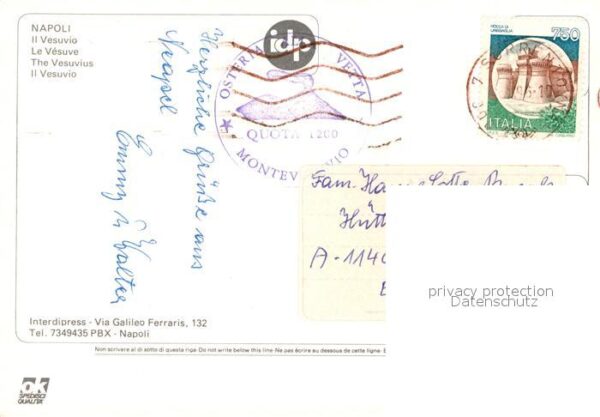 NAPOLI
Il Vesuvio
Le Vésuve
The Vesuvius
Il Vesuvio
idp
OSTERIA VETTA
QUOTA 1200
MONTEVESUVIO
ROCCA DI
URBISAGLIA
750
ITALIA
Herzliche Grüße aus
Neapel
Emmy u Walter
Fam.
Hütt
A-1140
privacy protection
Datenschutz
Interdipress - Via Galileo Ferraris, 132
Tel. 7349435 PBX - Napoli
Non scrivere al di sotto di questa riga - Do not write below this line - Ne pas écrire au dessous de cette ligne -
ok
SPEDISCI
QUALITA'